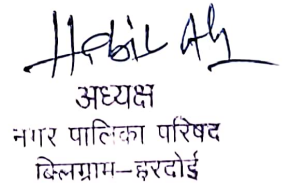 Habib Ali
अध्यक्ष
नगर पालिका परिषद
बिलग्राम–हरदोई